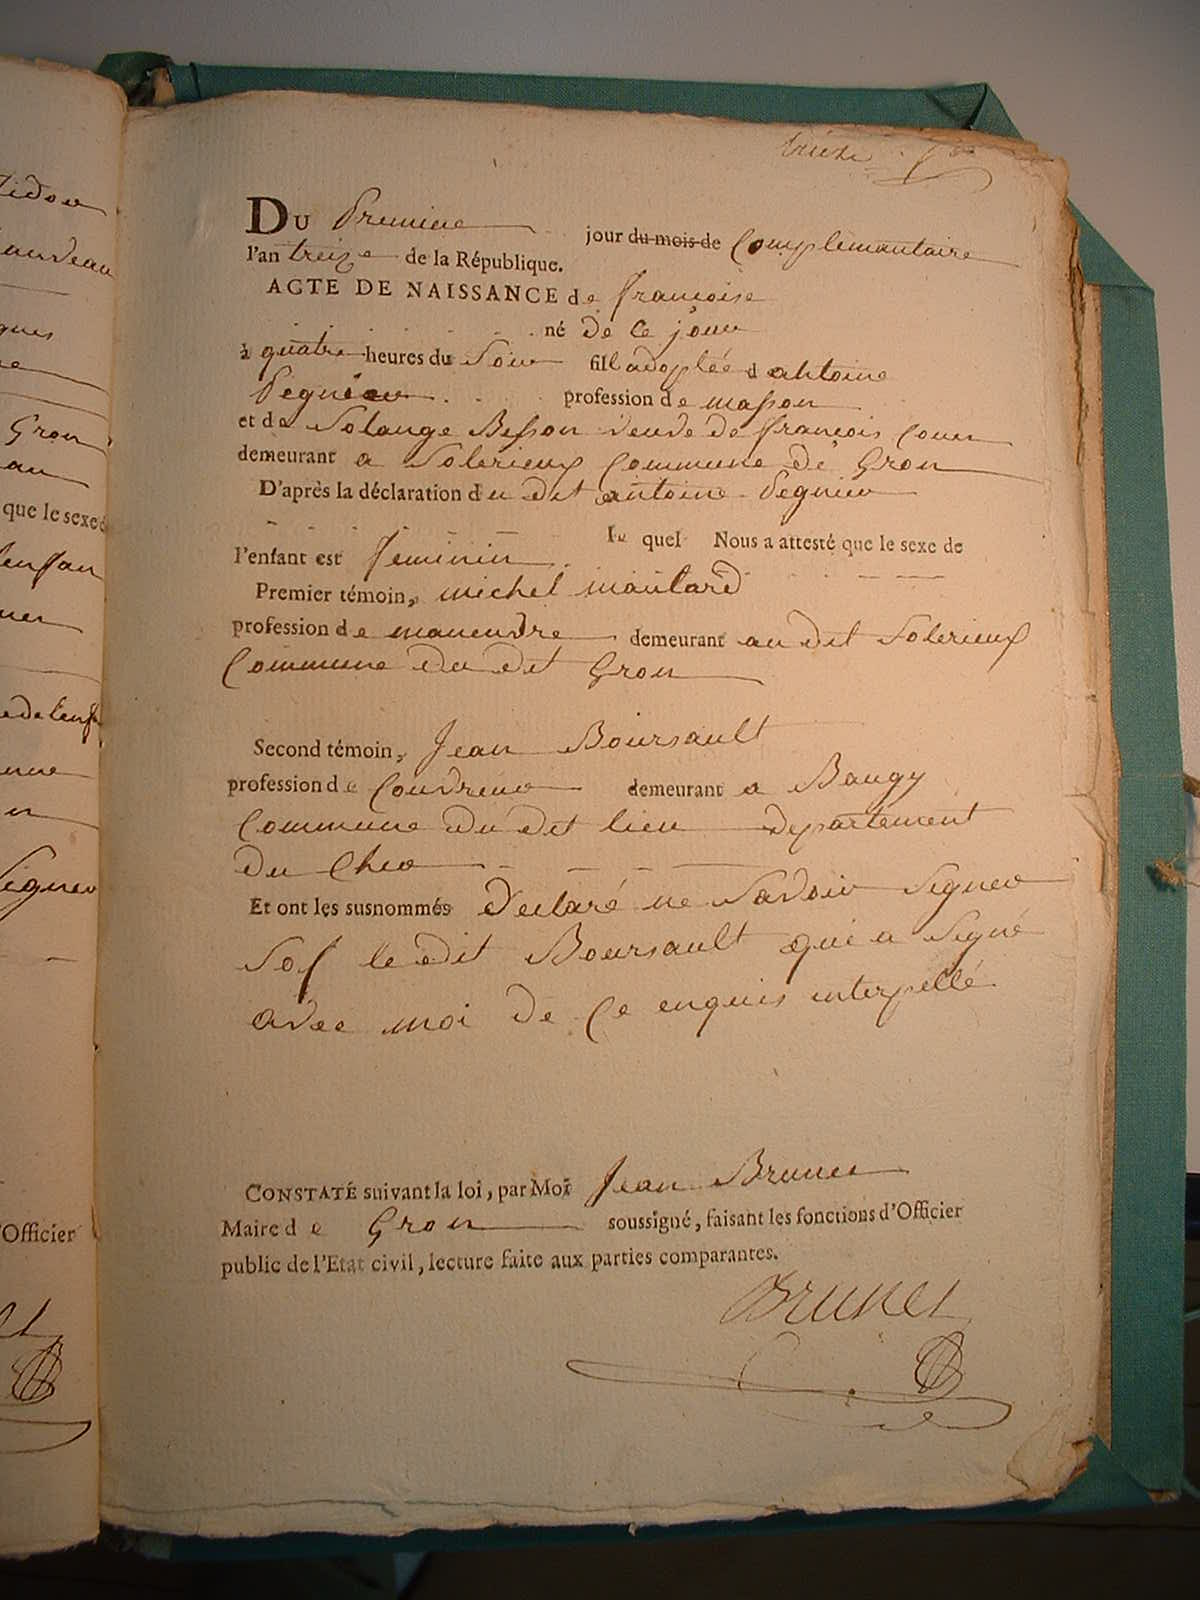 treize
Du Premiere jour du mois de Complemantaire
l'an treize de la République.
ACTE DE NAISSANCE de françoise
né de ce jour
à quatre heures du Soir fill adoptée d antoine
Pegnier profession de masson
et de Solange Besson veuve de françois Couer
demeurant a Solerieux Commune de Gron
D'après la déclaration du dit antoine Pegnier
le quel Nous a attesté que le sexe de
l'enfant est feminin
Premier témoin, michel moutard
profession de maneuvre demeurant au dit Solerieux
Commune du dit Gron
Second témoin, Jean Boursault
profession de Couvreur demeurant a Baugy
Commune du dit lieu departement
du Cher
Et ont les susnommés declaré ne Savoir Signer
Sof le dit Boursault qui a Signé
avec moi de Ce enquis interpellé
CONSTATÉ suivant la loi, par Moi Jean Brunet
Maire de Gron soussigné, faisant les fonctions d'Officier
public de l'Etat civil, lecture faite aux parties comparantes.
Brunet
que le sexe d
Gron
Signer
'Officier